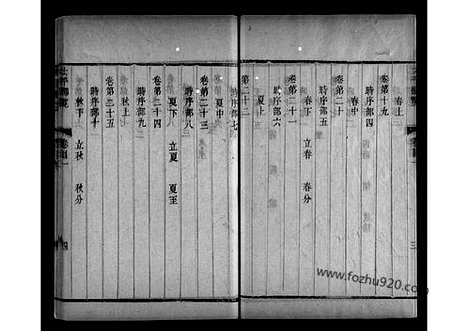 春上
卷第十九
時序部四
春中
卷第二十
時序部五
春下 立春 春分
卷第二十一
時序部六
夏上
卷第二十二
時序部七
夏中
卷第二十三
時序部八
夏下 立夏 夏至
卷第二十四
時序部九
秋上
卷第二十五
時序部十
秋下 立秋 秋分
www.fozhu920.com